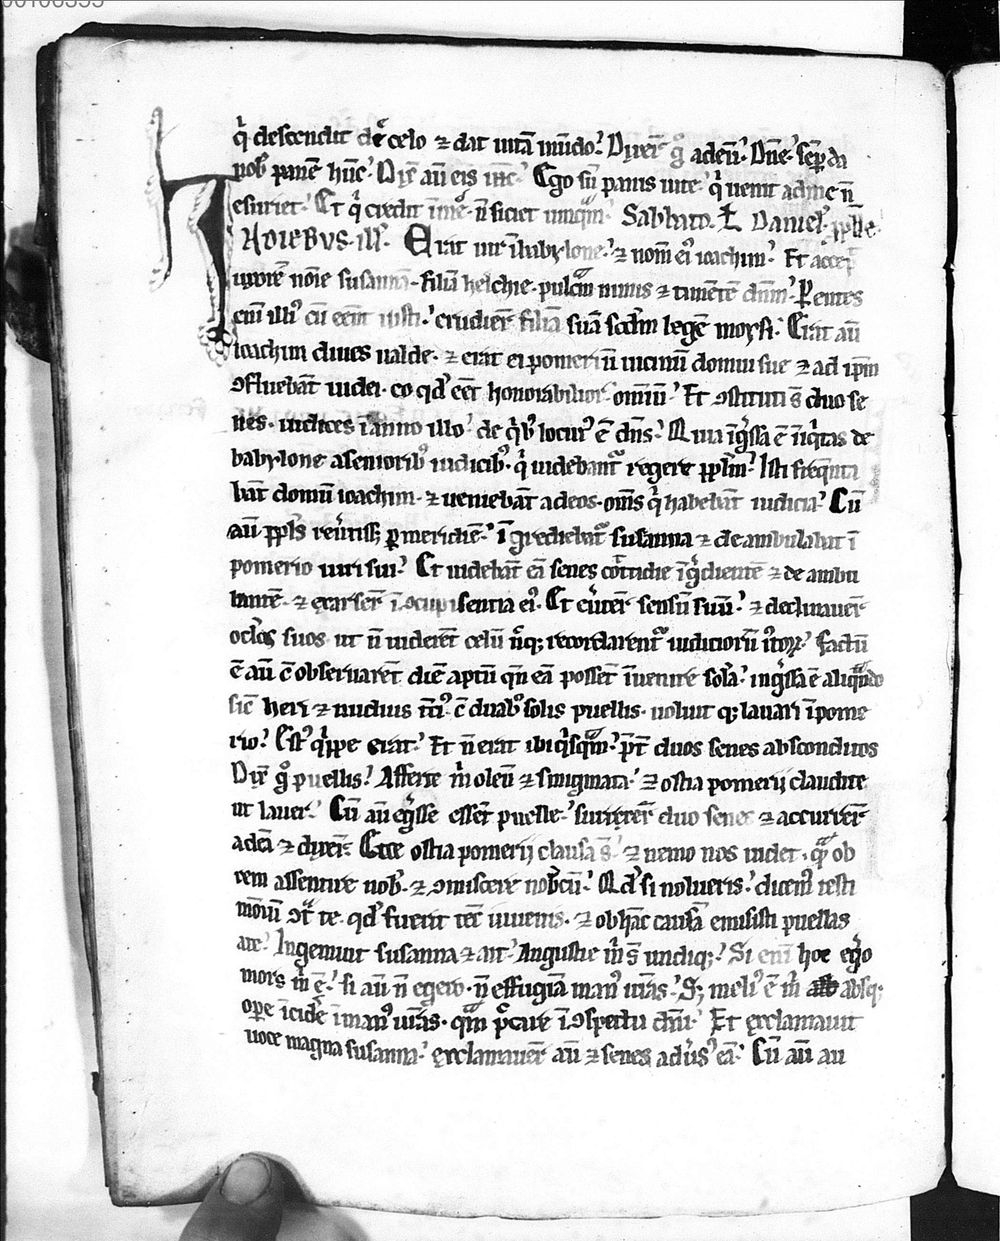 qͥ descendit de celo ⁊ dat uitā mūdo. Dixer̄ g̊ ad eū. Dn̄e. sēp da
nob̄ panē hūc. Dix̄ aū eis ihc̄. Ego sū panis uite. qͥ uenit ad me n̄
esuriet. Et qͥ credit ī me. n̄ siciet umqᵃm. Sabbato. L. Daniel. ꝓph̄e.
IN DIEBVS. ill̄. Erat uir ī babylone. ⁊ nom̄ eiꝰ ioachim. Et accep̄
uxorē noīe susannā. filiā helchie. pulcᵃm nimis ⁊ timētē dn̄m. Parentes
eni illiꝰ cū eēnt iusti. erudier̄ filiā suā scd̄m legē moysi. Erat aū
ioachim diues ualde. ⁊ erat ei pomeriū uicinū domui sue ⁊ ad ip̄m
ꝯfluebāt iudei. eo qd̄ eēt honorabilior omīū. Et ꝯstituti s̄ duo se
nes. iudices ī anno illo. de qͥbꝰ locutꝰ ē dn̄s. Quia īgͤssa ē īiqͥtas de
babylone a senioribꝰ iudicibꝰ. qͥ uidebantᷣ regere ppl̄m. Isti freq̄nta
bāt domū ioachim. ⁊ ueniebāt ad eos. om̄s qͥ habebāt iudicia. Cū
aū ppl̄s reūtiss; ꝑ meridiē. īgrediebatᷣ susanna ⁊ deambulabat ī
pomerio uiri sui. Et uidebāt eā senes cotidie īgͤdientē ⁊ deambu
lantē. ⁊ exarser̄ ī ꝯcupisentia eiꝰ. Et eūter̄ sensū suū. ⁊ declinauer̄
oclos suos ut n̄ uiderēt celū nͤq; recordarentᷣ iudiciorū iustoꝝ. Factū
ē aū cū obseruarēt diē aptū qn̄ eā possēt īuenire solā. ingͤssa ē aliqᵃndo
sic̄ heri ⁊ nudius tciꝰ cū duabꝰ solis puellis. uoluit q; lauari ī pome
rio. Estꝰ qͥppe erat. Et n̄ erat ibi qͥsqᵃm. p̄t duos senes absconditos
Dix̄ g̊ puellis. Afferte m̄ oleū ⁊ smigmata. ⁊ ostia pomerij claudite
ut lauer. Cū aū egͤsse essēt puelle. surrexer̄ duo senes ⁊ accurrer̄
ad eā ⁊ dixer̄. Ecce ostia pomerij clausa s̄. ⁊ nemo nos uidet. qᵃꝓ ob
rem assentire nob̄. ⁊ ꝯmiscere nobcū. Qd̄ si nolueris. dicemꝰ testi
moniū ꝯtᵃ te. qd̄ fuerit tecū iuuenis. ⁊ ob hāc causā emisisti puellas
a te. Ingemuit susanna ⁊ ait. Angustie m̄ s̄ undiq;. Si enī hoc egͦo
mors m̄ ē. si aū n̄ egero. n̄ effugiā manꝰ uīas. S; meliꝰ ē m̄ absq;
oꝑe īcidͤe ī manꝰ uīas. qᵃm peccare ī ꝯspectu dn̄i. Et exclamauit
uoce magna susanna. exclamauer̄ aū ⁊ senes aduͤsꝰ eā. Cū aū au